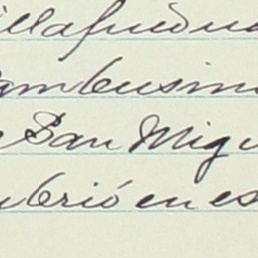 illafuedu
ambusino
San Migu
ubrió en es